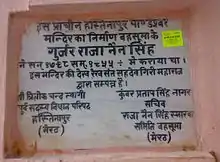 इस प्राचीन हस्तिनापुर पाण्डेश्वर
मन्दिर का निर्माण बहसूमा के
गुर्जर राजा नैन सिंह
ने सन् १७९८ सम्वत् १८५५ में कराया था।
इस मन्दिर की देख रेख संत सहदेव गिरी महाराज
द्वारा सम्पन्न है।
श्री प्रितीक चन्द त्यागी कुंवर प्रताप सिंह नागर
पूर्व सदस्य विधान परिषद सचिव
हस्तिनापुर राजा नैन सिंह स्मारक
(मेरठ) समिति बहसूमा
(मेरठ)